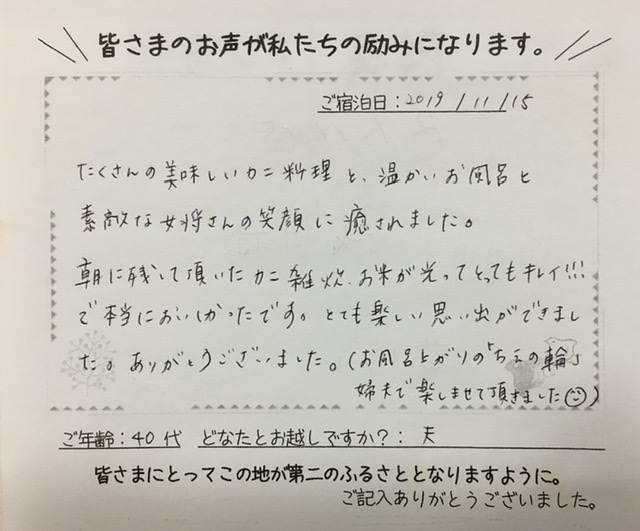 皆さまのお声が私たちの励みになります。
ご宿泊日：2019/11/15
たくさんの美味しいカニ料理と、温かいお風呂と
素敵な女将さんの笑顔に癒されました。
朝に残して頂いたカニ雑炊、お米が光ってとってもキレイ!!!
で本当においしかったです。とても楽しい思い出ができまし
た。ありがとうございました。(お風呂上がりの「ちえの輪」
婦夫で楽しませて頂きました☺)
ご年齢：40代 どなたとお越しですか？：夫
皆さまにとってこの地が第二のふるさととなりますように。
ご記入ありがとうございました。